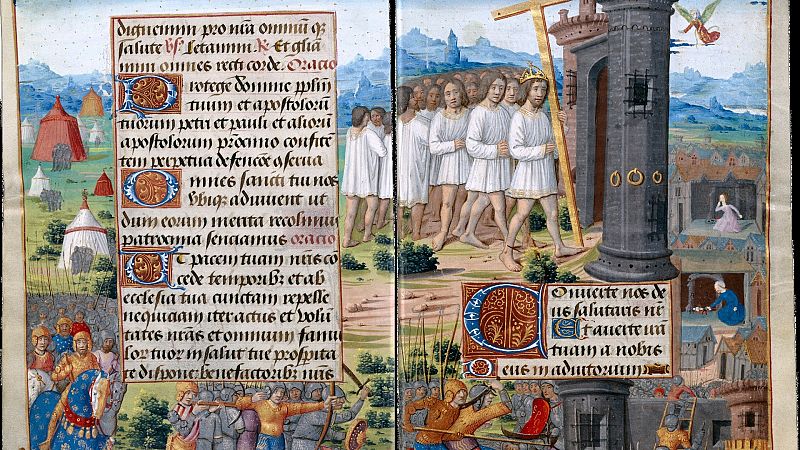 digneniur pro nra omnium q3
salute vs Letamini R Et glia
mini omnes recti corde. Oratio
Protege domine ppl'm
tuum et apostolorū
tuorum petri et pauli et alioru
apostolorum prcinio confitē
tem perpetua defencōe oserua
Omnes sancti tui nos
vbique adiuuent ut
dum eorum merita recolimus
patrocinia senciamus oratio
Et pacem tuam nris cō
cede temporibus et ab
ecclesia tua cunctam repelle
nequiciam iter actus et volun
tates nrās et omnium famu
lor tuor in salut tue prospita
te dispone benefactoribus nris
Conuerte nos de
us salutaris nr
Et auerte iram
tuam a nobis
Deus in adiutorium